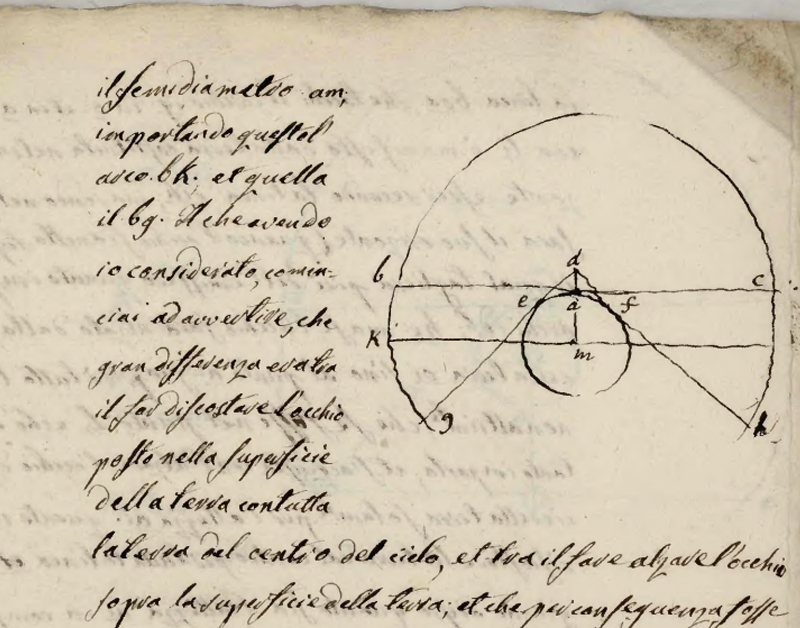 il semidiametro am;
importando quest'ol
arco.bk. et quella
il bg. Il che avendo
io considerato, comin-
ciai ad avvertire, che
gran differenza era tra
il far discostare l'occhio
posto nella superficie
della terra con tutta
la terra del centro del cielo, et tra il fare alzare l'occhio
sopra la superficie della terra; et che per conseguenza fosse
d
b
c
e
a
f
K
m
g
h